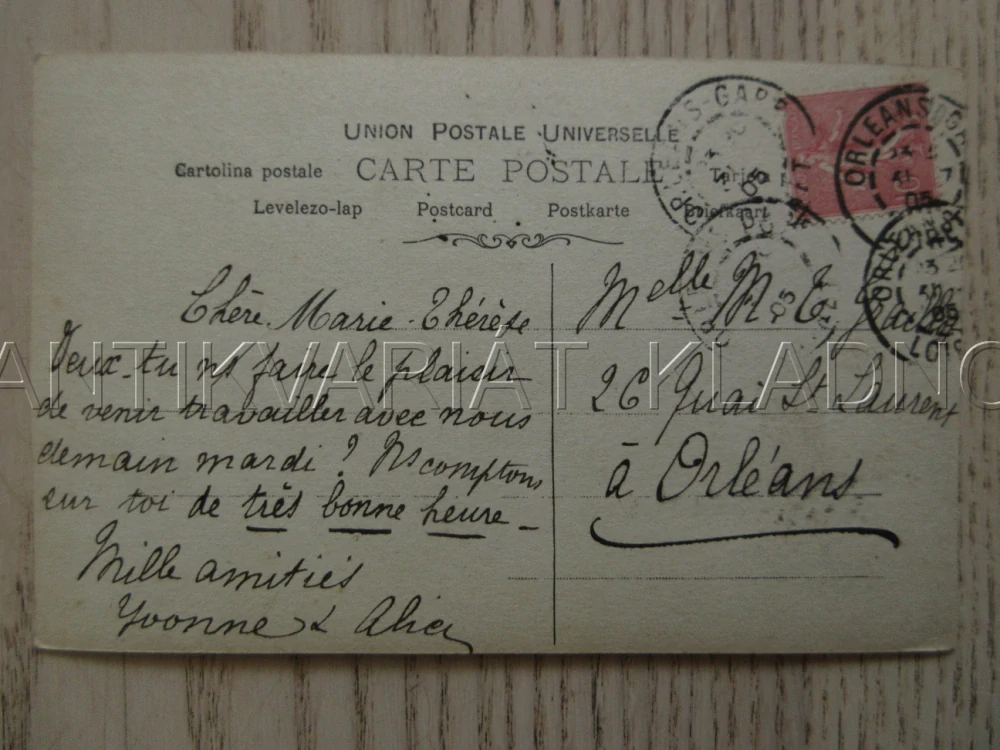 UNION POSTALE UNIVERSELLE
CARTE POSTALE
Cartolina postale
Levelezo-lap Postcard Postkarte Briefkaart
ORLEANS-GARE
ORLEANS
05
Chère Marie-Thérèse
Veux-tu ns faire le plaisir
de venir travailler avec nous
demain mardi ? Ns comptons
sur toi de très bonne heure -
Mille amitiés
Yvonne & Alice
Melle M. T.
26 Quai St Laurent
à Orléans
ANTIKVARIAT KLADNO